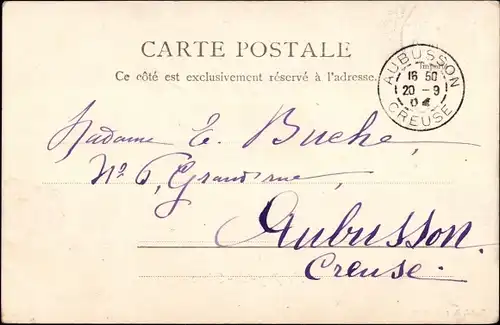 CARTE POSTALE
Ce côté est exclusivement réservé à l'adresse.
AUBUSSON
16 50
20 - 9
04
CREUSE
Madame E. Buche,
Nº 6, Grand'rue,
Aubusson.
Creuse.